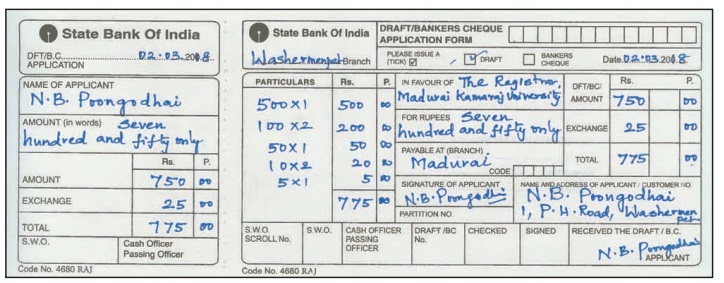 State Bank Of India
DFT/B.C. 02.03.2008.
APPLICATION
NAME OF APPLICANT
N.B. Poongodhai
AMOUNT (in words) Seven
hundred and fifty only
Rs. P.
AMOUNT 750 00
EXCHANGE 25 00
TOTAL 775 00
S.W.O. Cash Officer
Passing Officer
Code No. 4680 RAJ
State Bank Of India
Washermenpet Branch
DRAFT/BANKERS CHEQUE
APPLICATION FORM
PLEASE ISSUE A
(TICK) ☑ DRAFT BANKERS
CHEQUE Date.02.03.2008
PARTICULARS Rs. P.
500X1 500 00
100X2 200 00
50X1 50 00
10X2 20 00
5X1 5 00
775 00
IN FAVOUR OF The Registrar,
Madurai Kamaraj University
FOR RUPEES Seven
hundred and fifty only
PAYABLE AT (BRANCH)
Madurai
CODE
DFT/BC/ Rs. P.
AMOUNT 750 00
EXCHANGE 25 00
TOTAL 775 00
SIGNATURE OF APPLICANT
N.B. Poongodhi
PARTITION NO.
NAME AND ADDRESS OF APPLICANT / CUSTOMER NO.
N.B. Poongodhai
1, P.H. Road, Washermen
pet
S.W.O. SCROLL No.
S.W.O.
CASH OFFICER PASSING OFFICER
DRAFT /BC No.
CHECKED
SIGNED
RECEIVED THE DRAFT / B.C.
N.B. Poongodhai
APPLICANT
Code No. 4680 RAJ